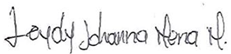 Leydy Johanna Mena M.